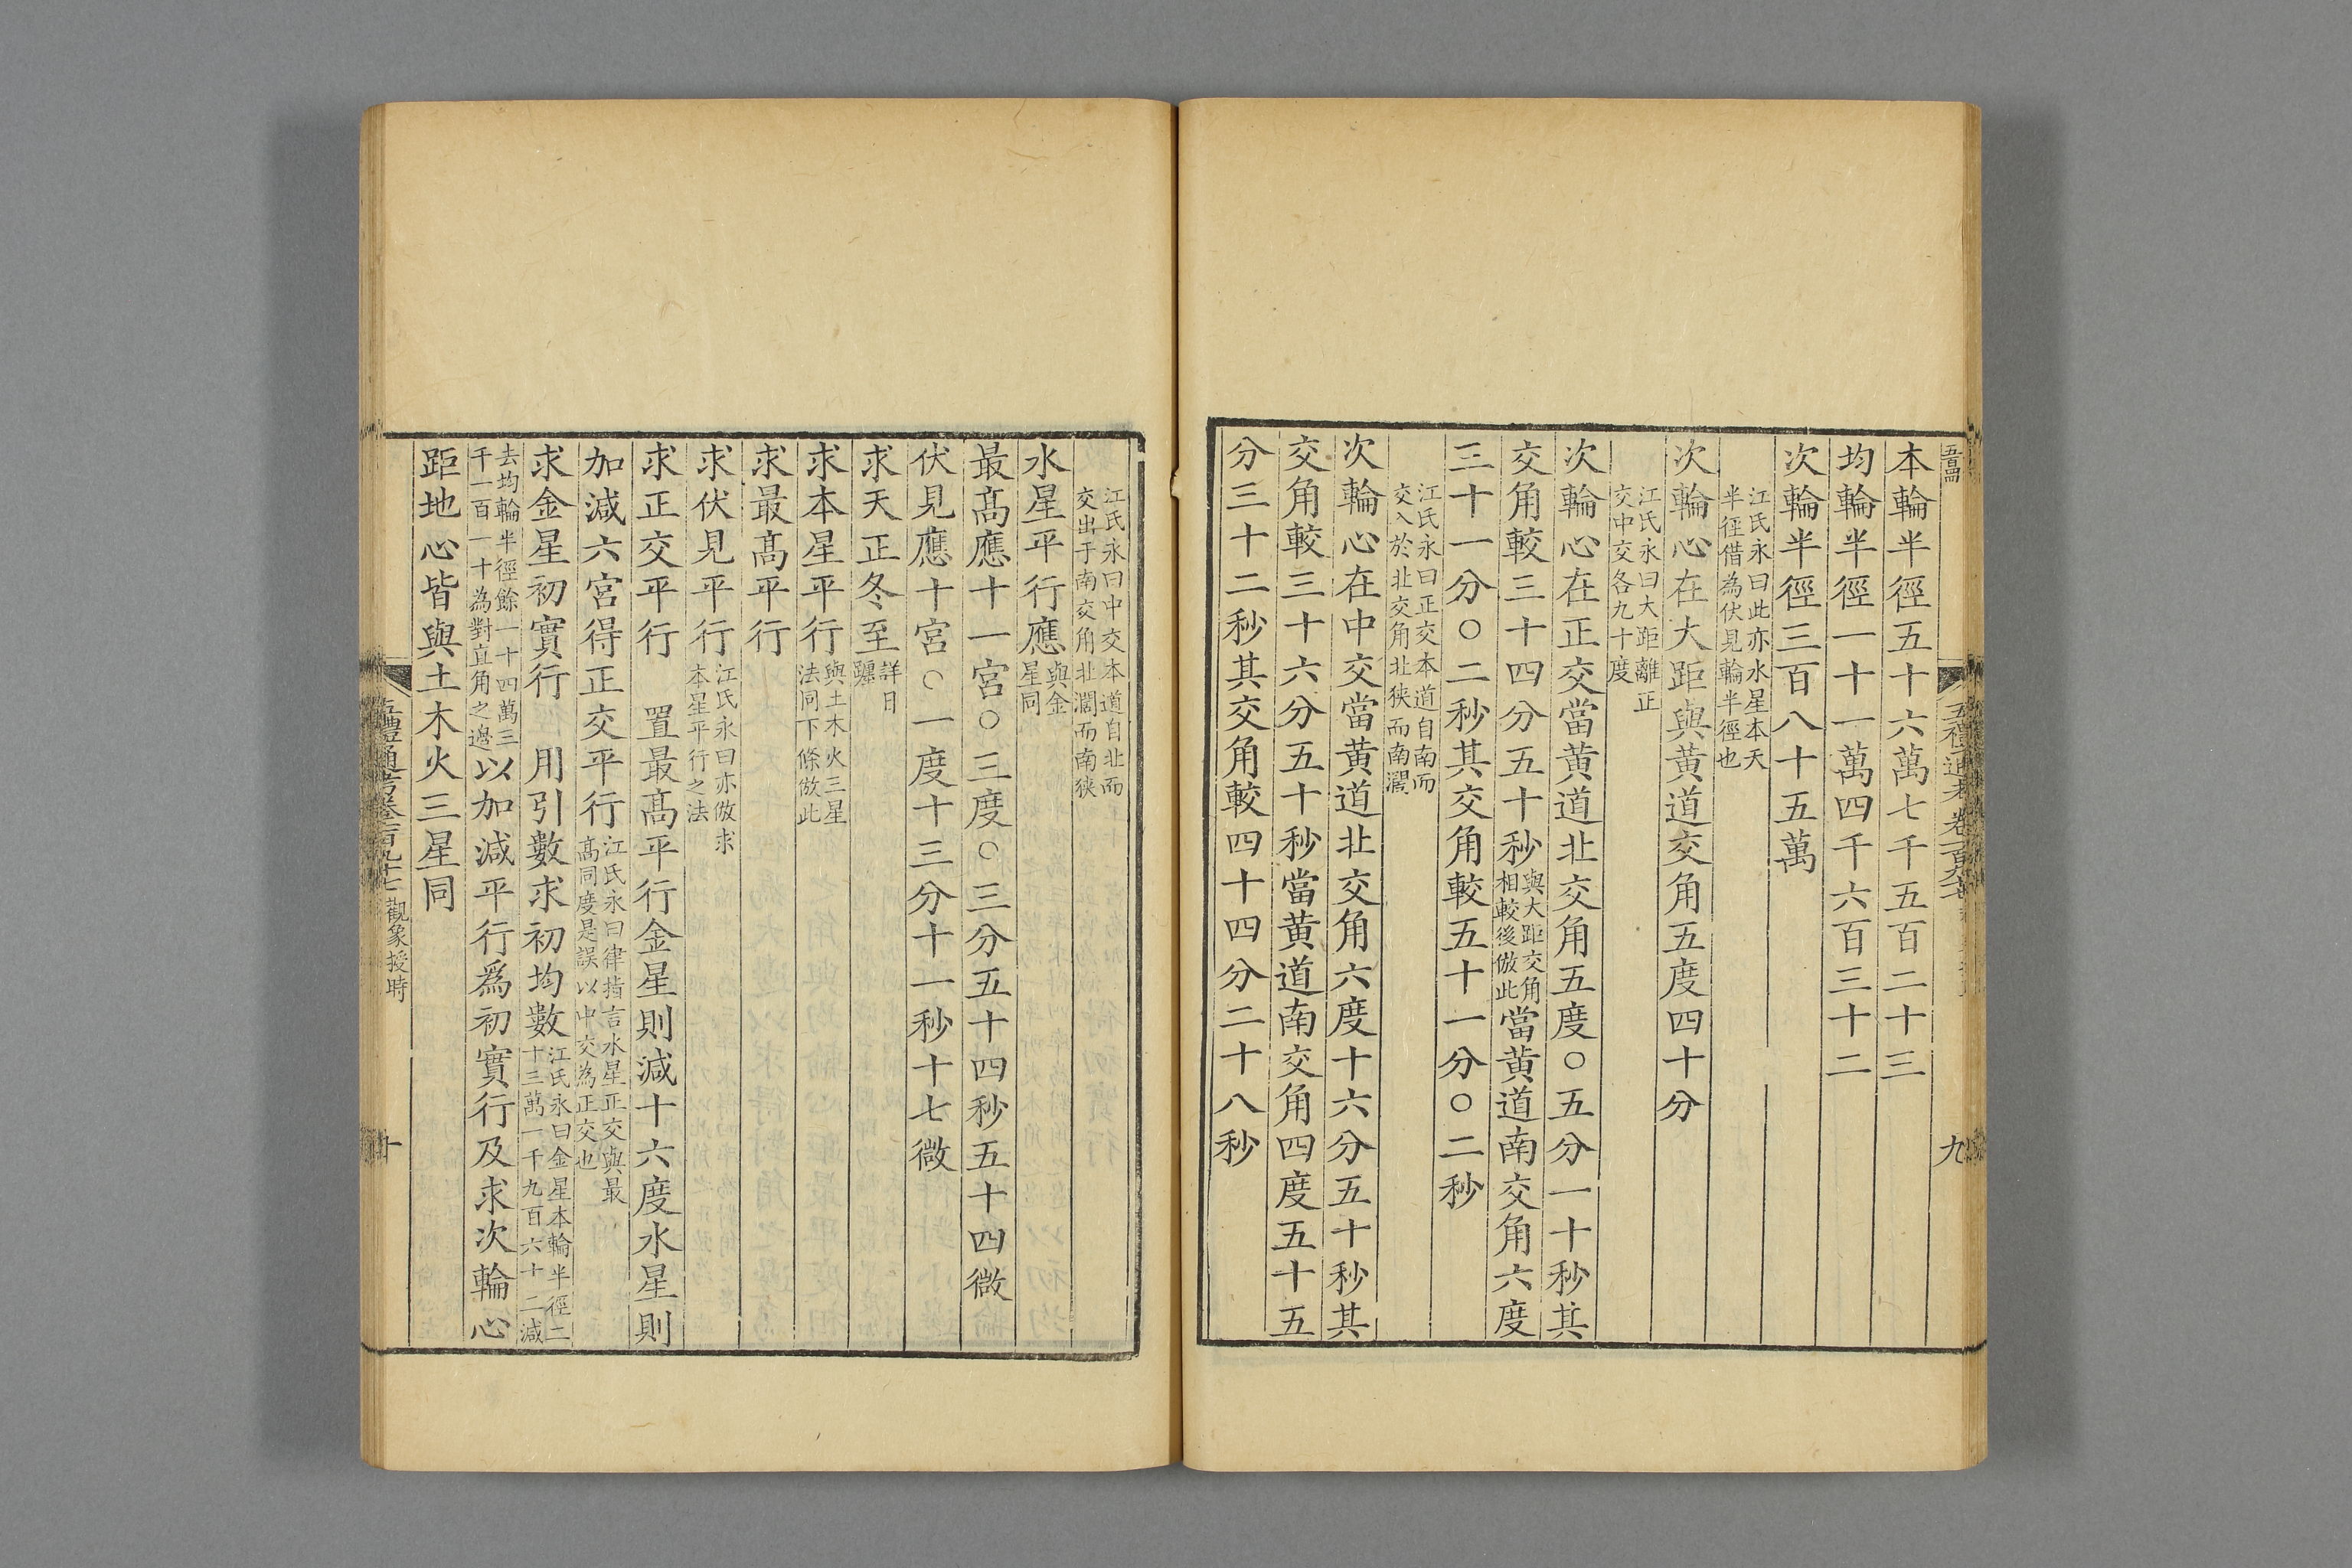 本輪半徑五十六萬七千五百二十三
均輪半徑一十一萬四千六百三十二
次輪半徑三百八十五萬
江氏永曰此亦水星本天
半徑借為伏見輪半徑也
次輪心在大距與黄道交角五度四十分
江氏永曰大距離正
交中交各九十度
次輪心在正交當黄道北交角五度〇五分一十秒其
交角較三十四分五十秒與大距交角相較後倣此當黄道南交角六度
三十一分〇二秒其交角較五十一分〇二秒
江氏永曰正交本道自南而
交入於北交角北狹而南濶
次輪心在中交當黄道北交角六度十六分五十秒其
交角較三十六分五十秒當黄道南交角四度五十五
分三十二秒其交角較四十四分二十八秒
九
江氏永曰中交本道自北而
交出于南交角北濶而南狹
水星平行應與金星同
最髙應十一宮〇三度〇三分五十四秒五十四微
伏見應十宮〇一度十三分十一秒十七微
求天正冬至詳日躔
求本星平行與土木火三星法同下條倣此
求最髙平行
求伏見平行江氏永曰亦倣求本星平行之法
求正交平行　置最髙平行金星則減十六度水星則
加減六宮得正交平行江氏永曰律指言水星正交與最髙同度是誤以中交為正交也
求金星初實行　用引數求初均數江氏永曰金星本輪半徑二十三萬一千九百六十二減
去均輪半徑餘一十四萬三千一百一十為對直角之邊以加減平行爲初實行及求次輪心
距地心皆與土木火三星同
五禮通考卷一百九十七 觀象授時
十